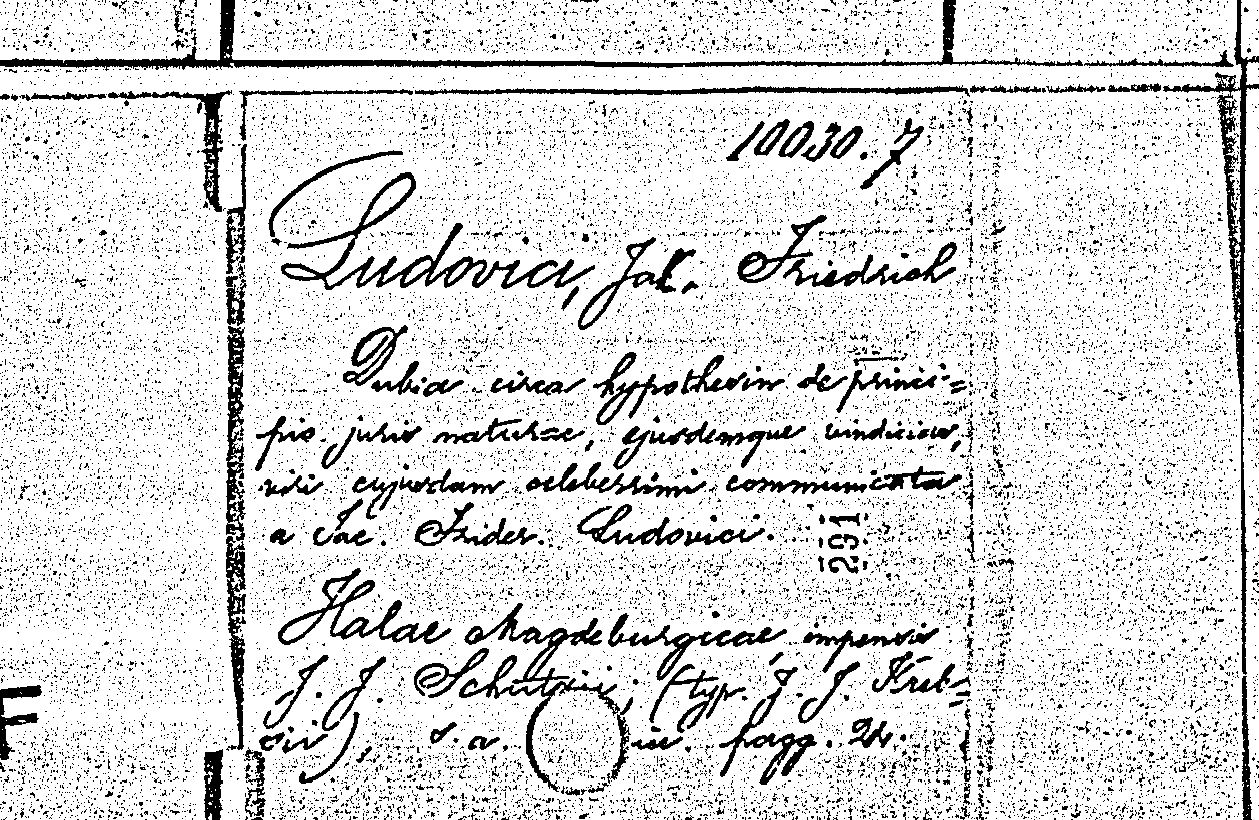 10030. 7
Ludovici, Jak. Friedrich
Dubia circa hypothesin de princi=
piis juris naturae, ejusdemque vindiciae,
viri cujusdam celeberrimi communicata
a Jac. Frider. Ludovici.
291
Halae Magdeburgicae, impensis
J. J. Schützii; (typ. J. J. Kreb=
sii), s. a. in. pagg. 24.
F